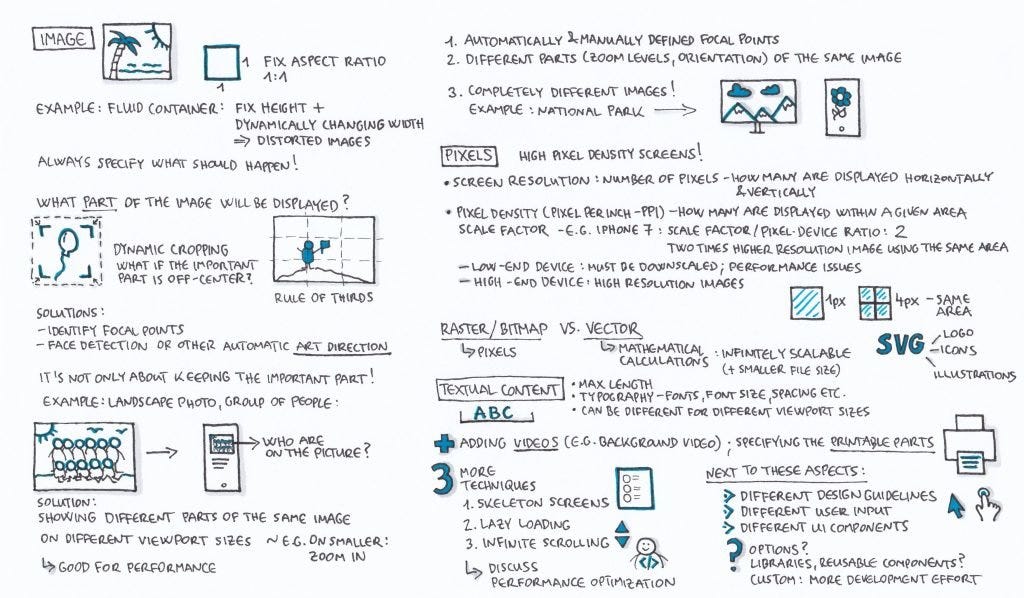 IMAGE
1
1
FIX ASPECT RATIO
1:1
EXAMPLE: FLUID CONTAINER: FIX HEIGHT +
DYNAMICALLY CHANGING WIDTH
⇒ DISTORTED IMAGES
ALWAYS SPECIFY WHAT SHOULD HAPPEN!
WHAT PART OF THE IMAGE WILL BE DISPLAYED?
DYNAMIC CROPPING
WHAT IF THE IMPORTANT
PART IS OFF-CENTER?
RULE OF THIRDS
SOLUTIONS:
- IDENTIFY FOCAL POINTS
- FACE DETECTION OR OTHER AUTOMATIC ART DIRECTION
IT'S NOT ONLY ABOUT KEEPING THE IMPORTANT PART!
EXAMPLE: LANDSCAPE PHOTO, GROUP OF PEOPLE:
WHO ARE
ON THE PICTURE?
SOLUTION:
SHOWING DIFFERENT PARTS OF THE SAME IMAGE
ON DIFFERENT VIEWPORT SIZES ~ E.G. ON SMALLER:
ZOOM IN
↳ GOOD FOR PERFORMANCE
1. AUTOMATICALLY & MANUALLY DEFINED FOCAL POINTS
2. DIFFERENT PARTS (ZOOM LEVELS, ORIENTATION) OF THE SAME IMAGE
3. COMPLETELY DIFFERENT IMAGES!
EXAMPLE: NATIONAL PARK →
PIXELS HIGH PIXEL DENSITY SCREENS!
• SCREEN RESOLUTION: NUMBER OF PIXELS - HOW MANY ARE DISPLAYED HORIZONTALLY
& VERTICALLY
• PIXEL DENSITY (PIXEL PER INCH - PPI) - HOW MANY ARE DISPLAYED WITHIN A GIVEN AREA
SCALE FACTOR - E.G. IPHONE 7: SCALE FACTOR/PIXEL-DEVICE RATIO: 2
TWO TIMES HIGHER RESOLUTION IMAGE USING THE SAME AREA
- LOW-END DEVICE: MUST BE DOWNSCALED; PERFORMANCE ISSUES
- HIGH-END DEVICE: HIGH RESOLUTION IMAGES
1px 4px - SAME
AREA
RASTER/BITMAP VS. VECTOR
↳ PIXELS
↳ MATHEMATICAL
CALCULATIONS: INFINITELY SCALABLE
(+ SMALLER FILE SIZE)
SVG
LOGO
ICONS
ILLUSTRATIONS
TEXTUAL CONTENT
ABC
• MAX LENGTH
• TYPOGRAPHY - FONTS, FONT SIZE, SPACING ETC.
• CAN BE DIFFERENT FOR DIFFERENT VIEWPORT SIZES
+ ADDING VIDEOS (E.G. BACKGROUND VIDEO); SPECIFYING THE PRINTABLE PARTS
3 MORE
TECHNIQUES
1. SKELETON SCREENS
2. LAZY LOADING
3. INFINITE SCROLLING
</>
↳ DISCUSS
PERFORMANCE OPTIMIZATION
NEXT TO THESE ASPECTS:
> DIFFERENT DESIGN GUIDELINES
> DIFFERENT USER INPUT
> DIFFERENT UI COMPONENTS
? OPTIONS?
LIBRARIES, REUSABLE COMPONENTS?
CUSTOM: MORE DEVELOPMENT EFFORT